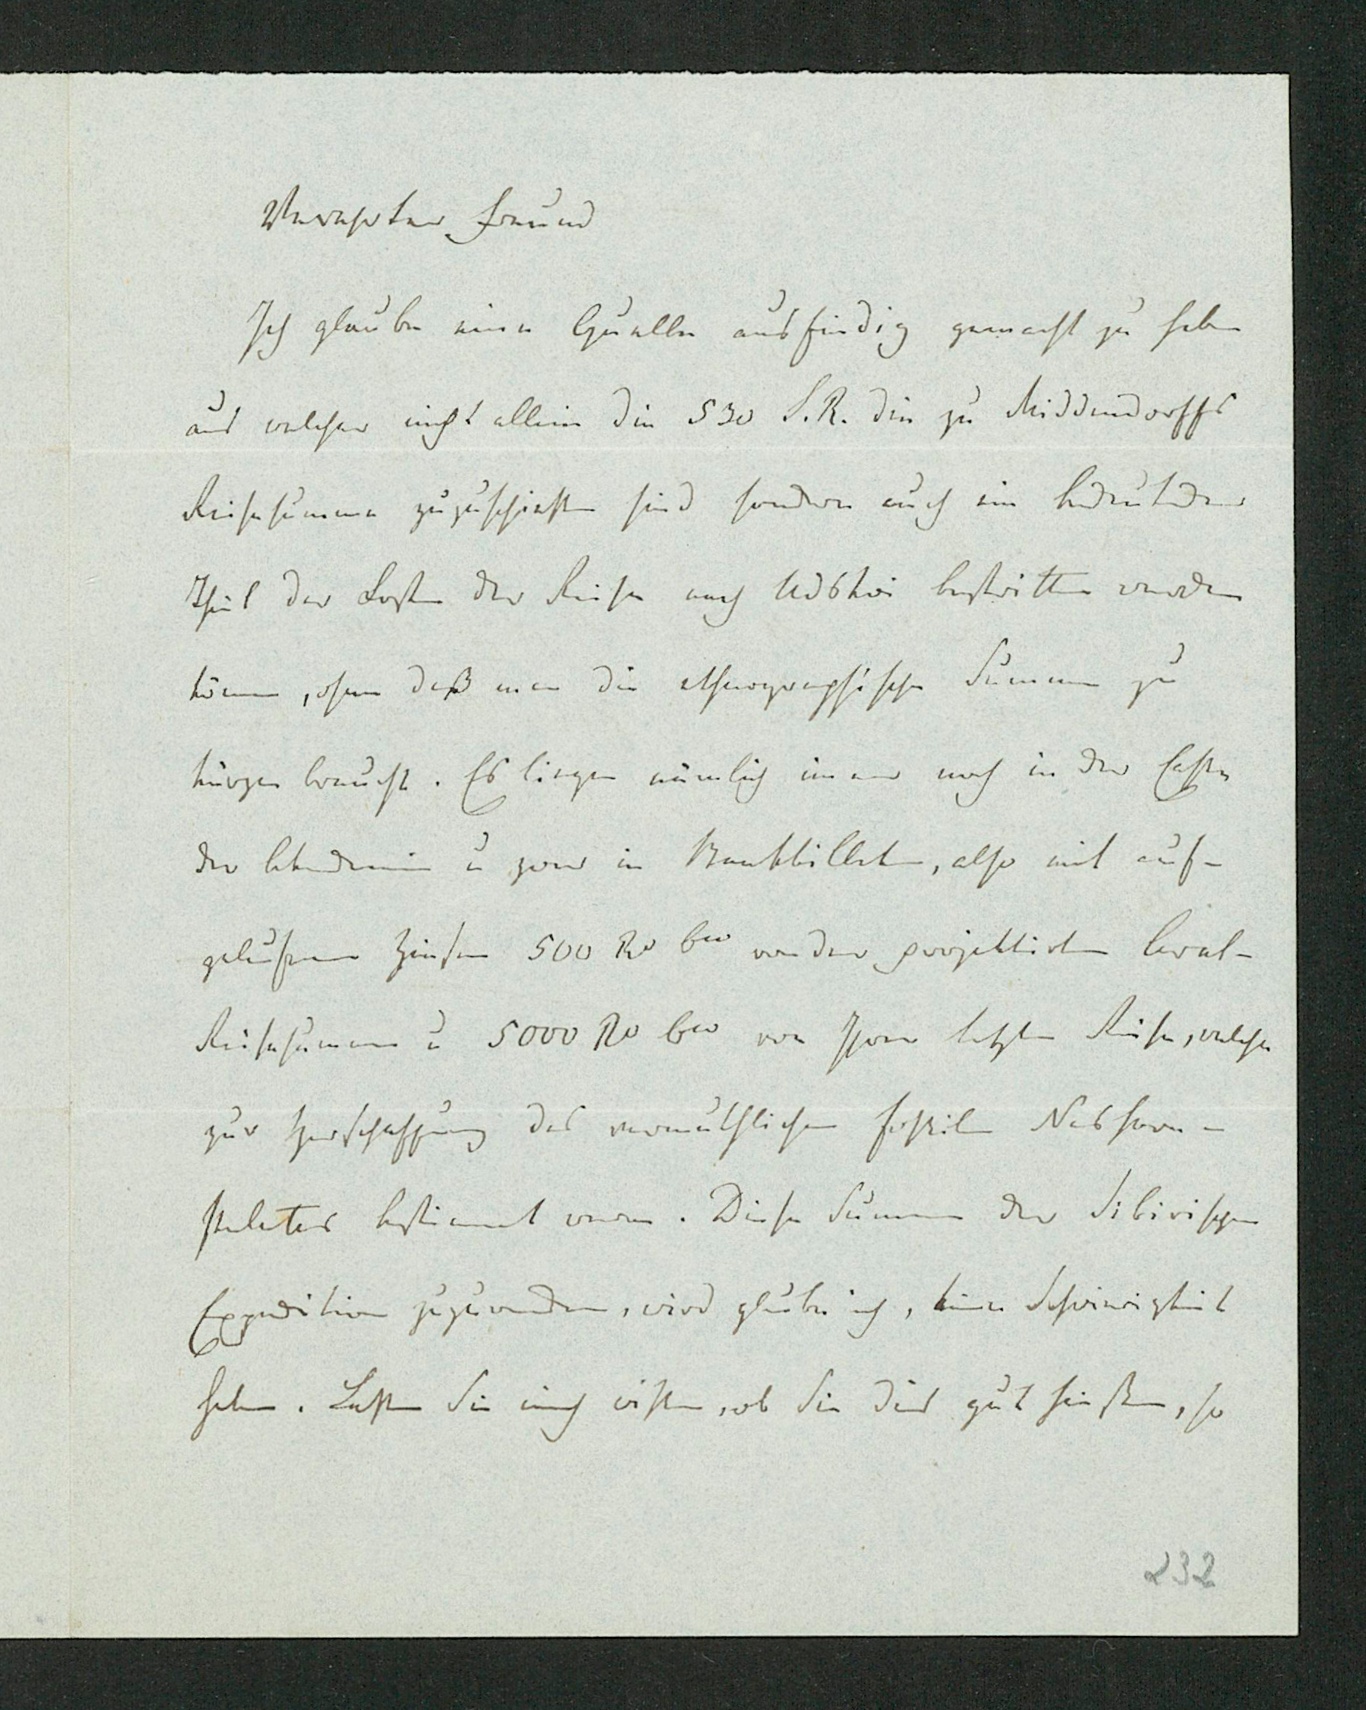 Verehrter Freund
Ich glaube eine Quelle ausfindig gemacht zu haben
aus welcher nicht allein die 530 S.R. die zu Middendorffs
Reisesumme zuzuschießen sind sondern auch ein bedeutender
Theil der Kosten der Reise nach Udskoi bestritten werden
können, ohne daß man die ethnographische Summe zu
kürzen braucht. Es liegen nämlich immer noch in der Casse
der Akademie u zwar in Bankbilleten, also mit auf-
gelaufenen Zinsen 500 Ro Bco von der projektirten Aral-
Reisesumme u 5000 Ro Bco von Ihrer letzten Reise, welche
zur Herschaffung des vermuthlichen fossilen Nashorn-
skeletes bestimmt waren. Diese Summen der Sibirischen
Expedition zuzuwenden, wird glaube ich, keine Schwierigkeit
haben. Lassen Sie mich wissen, ob Sie dies gut heißen, so
232